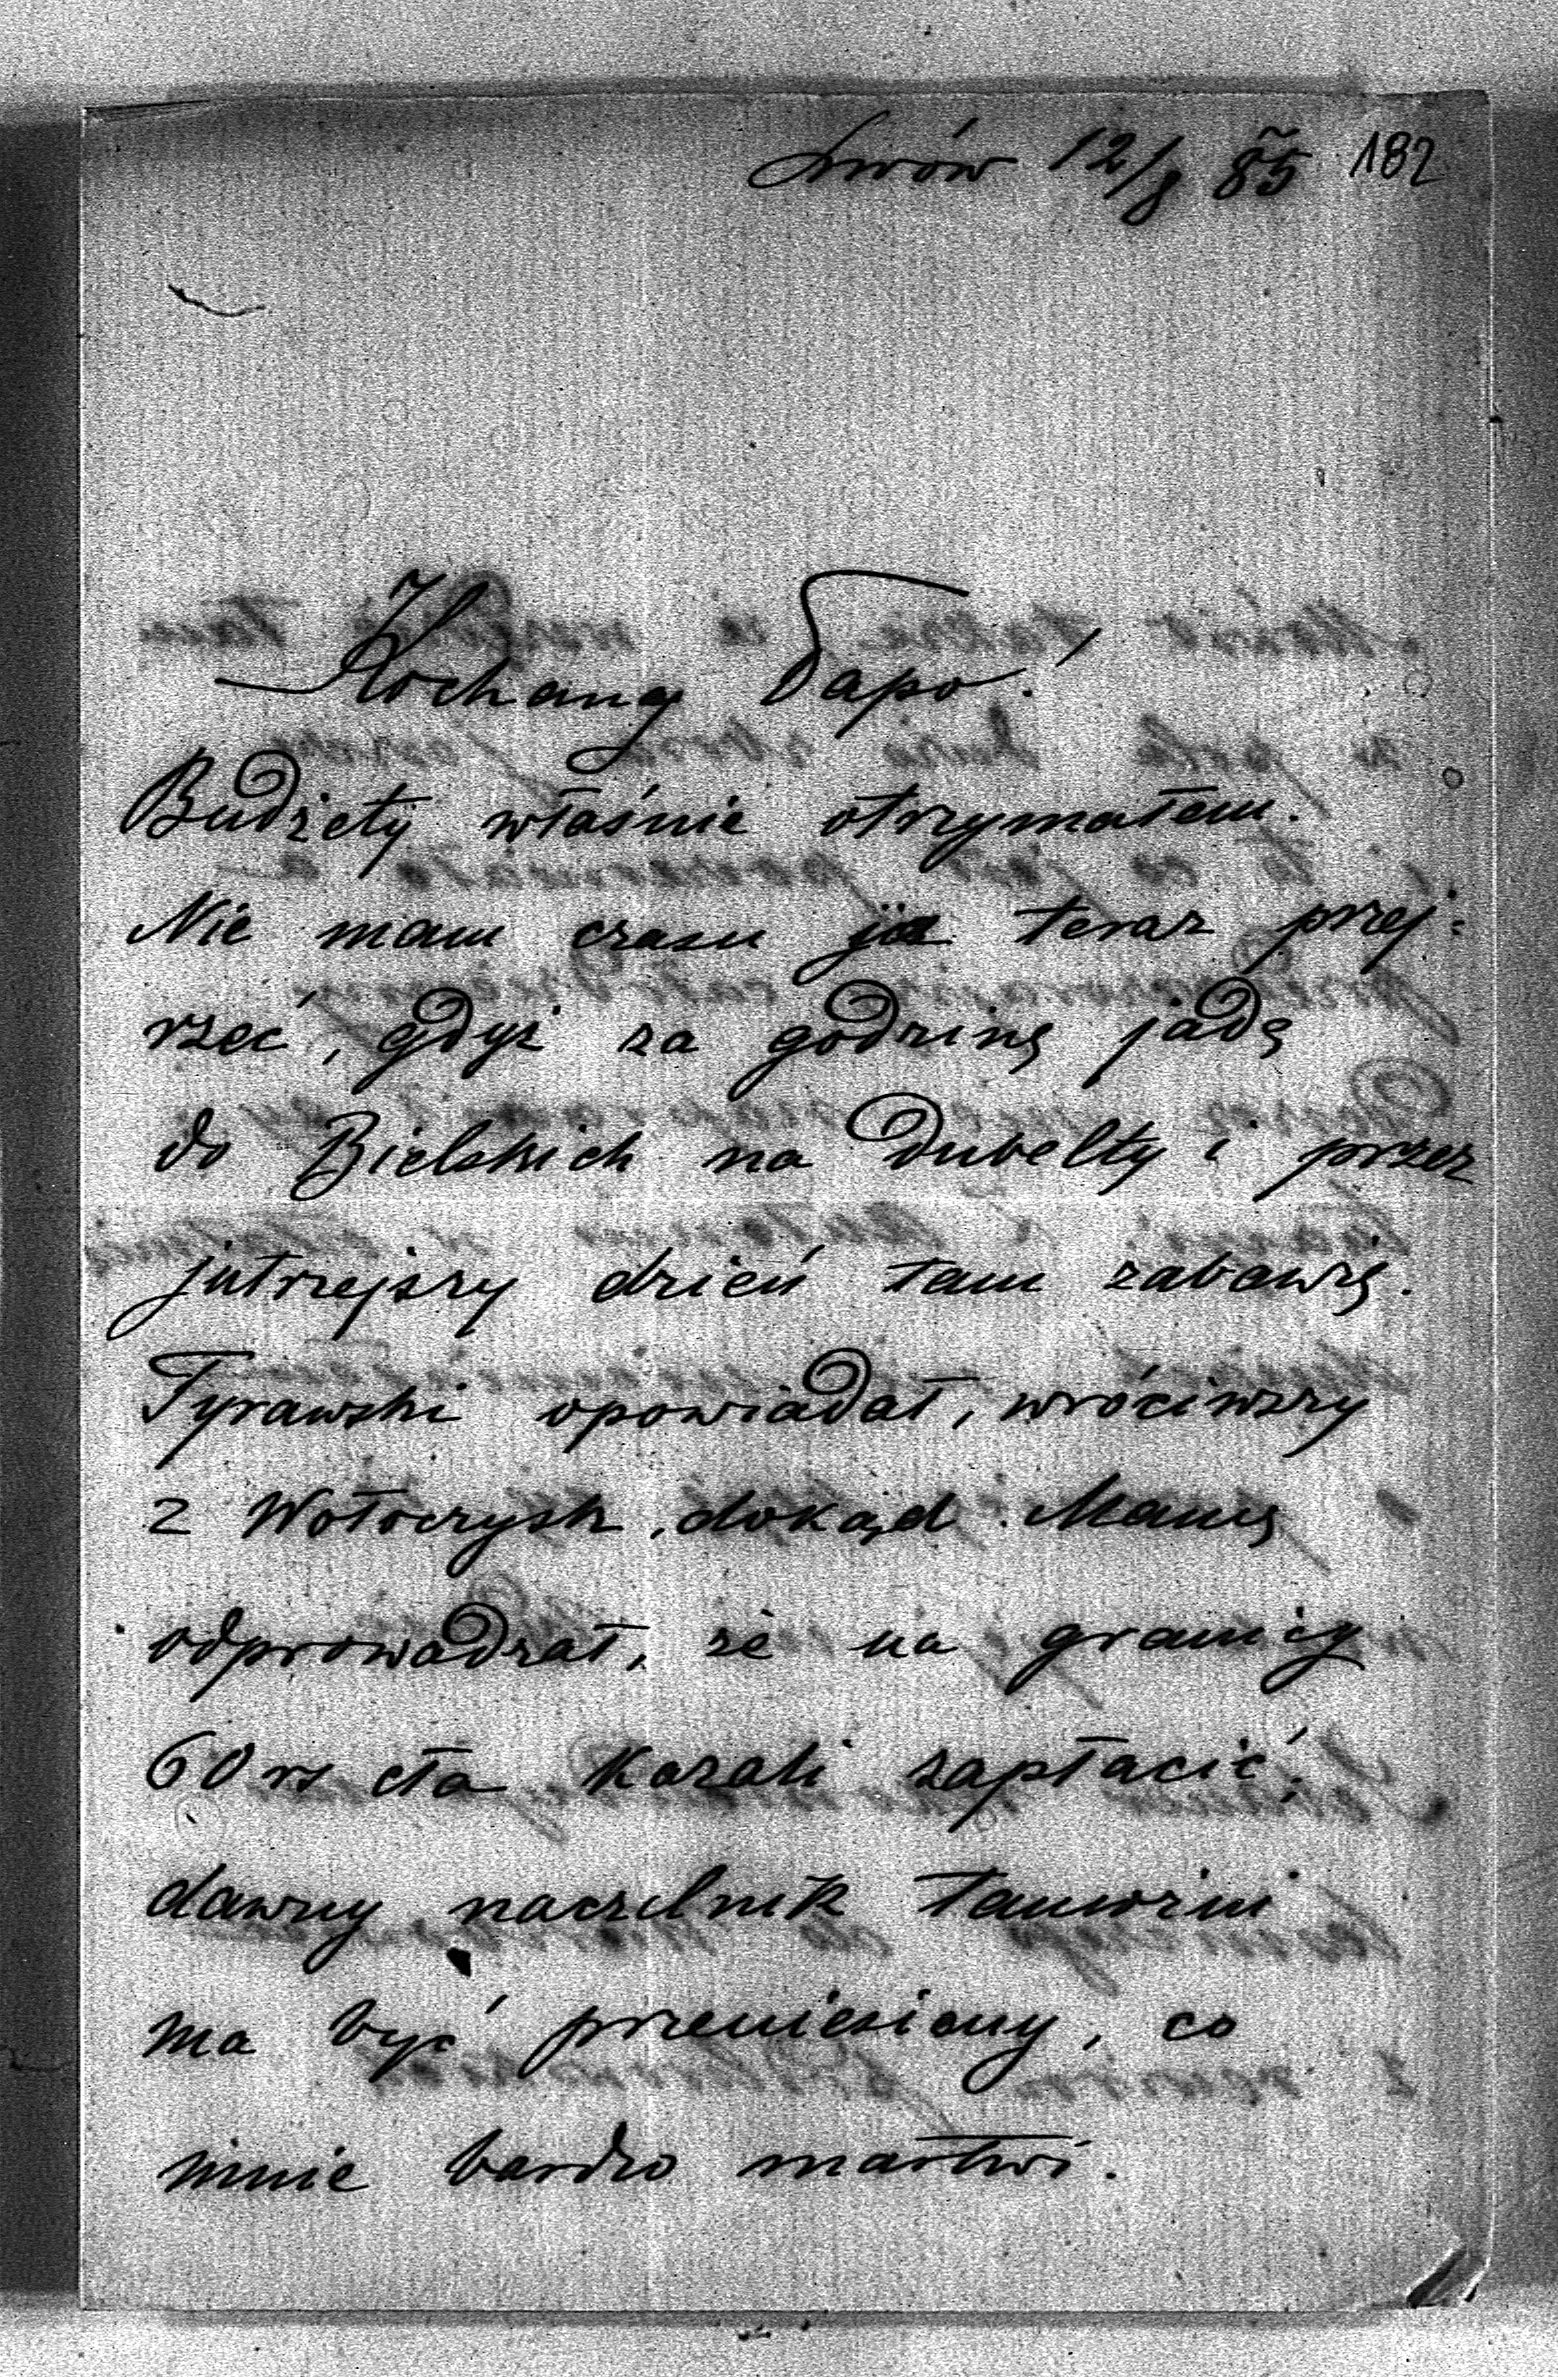 Lwów 12/8 85 182
Kochany Papo!
Budżety właśnie otrzymałem.
Nie mam czasu je teraz przej-
rzeć, gdyż za godzinę jadę
do Bielskich na dubelty i przez
jutrzejszy dzień tam zabawię.
Tyrawski opowiadał, wróciwszy
z Wołoczysk, dokąd Manię
odprowadzał, że na granicy
60 rs cła kazali zapłacić;
dawny naczelnik tamożni
ma być przeniesiony, co
mnie bardzo martwi.